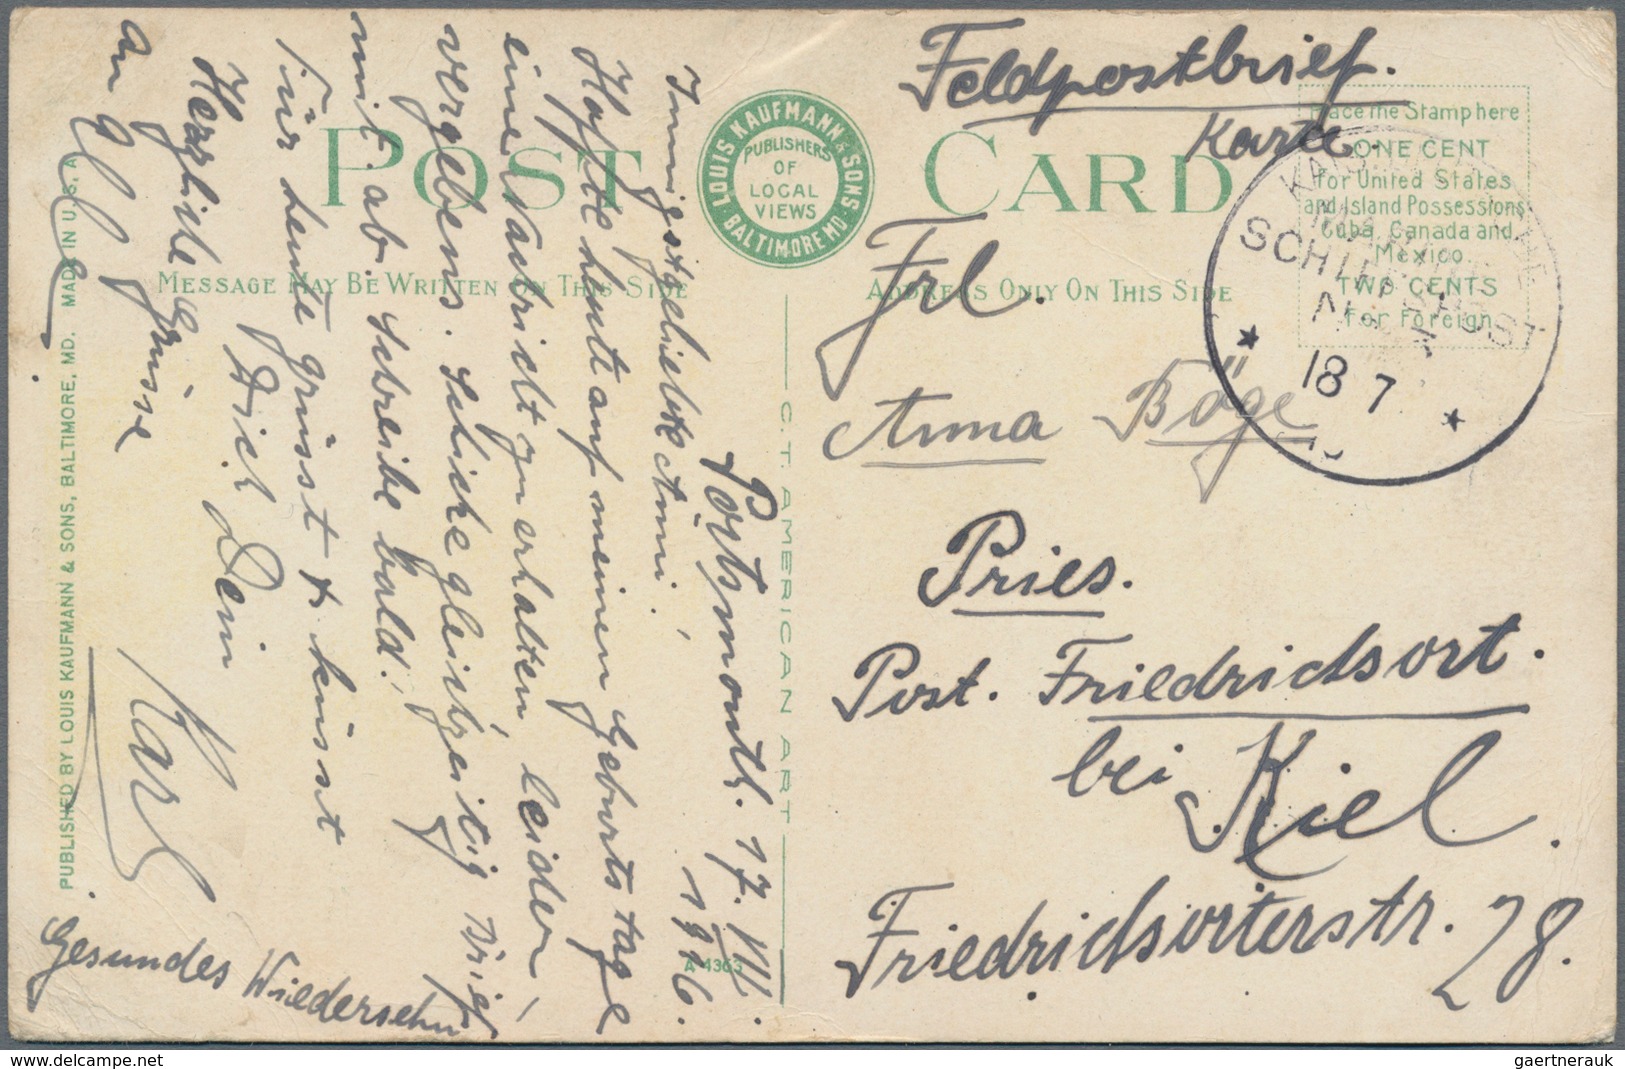 Feldpostbrief.
Karte.
POST CARD
LOUIS KAUFMANN & SONS
BALTIMORE MD.
PUBLISHERS
OF
LOCAL
VIEWS
Place the Stamp here
ONE CENT
for United States
and Island Possessions
Cuba, Canada and
Mexico
TWO CENTS
For Foreign
MESSAGE MAY BE WRITTEN ON THIS SIDE
ADDRESS ONLY ON THIS SIDE
SCHIFFSPOST
18 7
Frl.
Anna Böge
Pries.
Post. Friedrichsort.
bei Kiel.
Friedrichsorterstr. 28.
Portsmouth. 17. VII.
1916.
Innigstgeliebte Anni!
Hoffte heute auf meinen Geburtstage
eine Nachricht zu erhalten, leider,
vergebens. Schicke gleichzeitig Brief
mit ab. Schreibe bald!
Für heute grüsst & küsst
Dich Dein
Karl
Herzliche Grüsse
an
Gesundes Wiedersehn
C.T. AMERICAN ART
A 4363
PUBLISHED BY LOUIS KAUFMANN & SONS, BALTIMORE, MD. MADE IN U.S.A.
gaertnerauk
www.delcampe.net